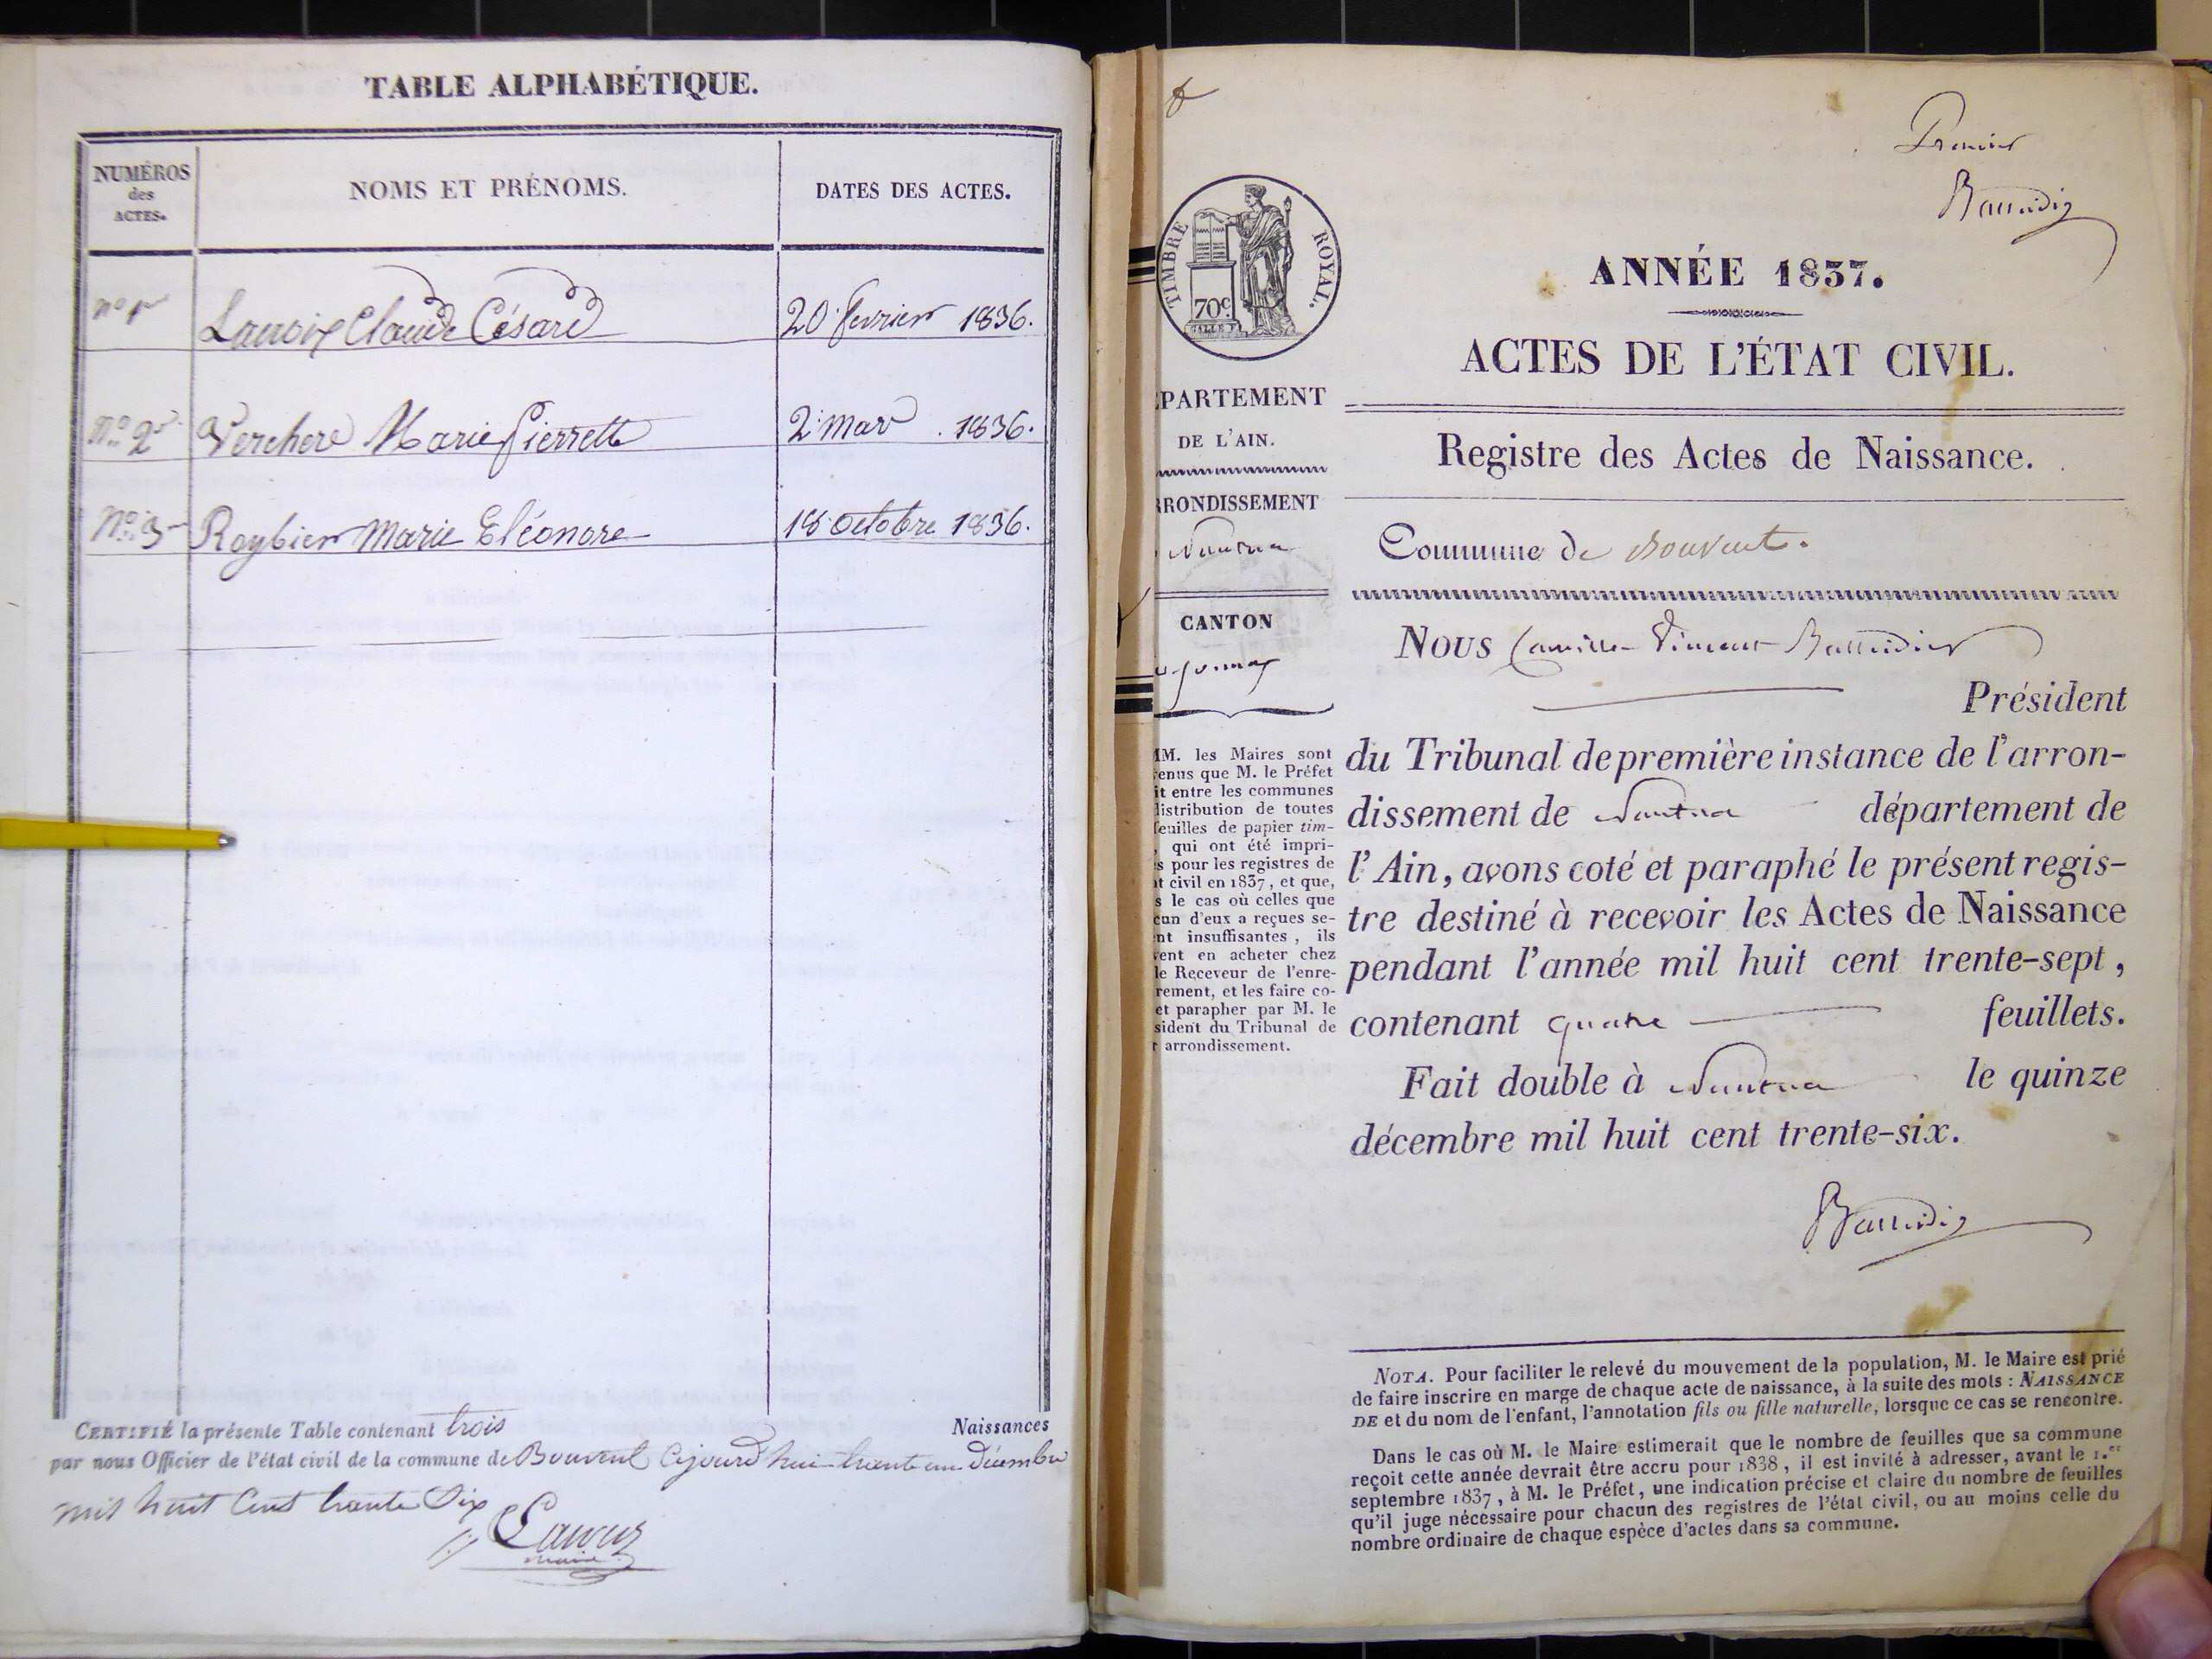 TABLE ALPHABÉTIQUE.
NUMÉROS
des
ACTES.
NOMS ET PRÉNOMS.
DATES DES ACTES.
Lacroix Claude Césard
20 fevrier 1836.
No 2 Verchere Marie Pierrette
2 mar 1836.
No 3 Roybier Marie Eléonore
18 octobre 1836.
CERTIFIÉ la présente Table contenant trois Naissances
par nous Officier de l'état civil de la commune de Bouvent Cejourd'hui trente un Décembre
mil huit Cent trente Six
maire
Premier
TIMBRE ROYAL.
70c.
ANNÉE 1837.
ACTES DE L'ÉTAT CIVIL.
Registre des Actes de Naissance.
Commune de Bouvent.
PARTEMENT
DE L'AIN.
RRONDISSEMENT
Nantua
CANTON
NOUS Camille Vincent
Président
du Tribunal de première instance de l'arron-
dissement de Nantua département de
l'Ain, avons coté et paraphé le présent regis-
tre destiné à recevoir les Actes de Naissance
pendant l'année mil huit cent trente-sept,
contenant quatre feuillets.
Fait double à Nantua le quinze
décembre mil huit cent trente-six.
MM. les Maires sont
enus que M. le Préfet
it entre les communes
distribution de toutes
feuilles de papier tim-
, qui ont été impri-
s pour les registres de
at civil en 1837, et que,
s le cas où celles que
cun d'eux a reçues se-
nt insuffisantes, ils
vent en acheter chez
le Receveur de l'enre-
rement, et les faire co-
et parapher par M. le
sident du Tribunal de
r arrondissement.
NOTA. Pour faciliter le relevé du mouvement de la population, M. le Maire est prié
de faire inscrire en marge de chaque acte de naissance, à la suite des mots : NAISSANCE
DE et du nom de l'enfant, l'annotation fils ou fille naturelle, lorsque ce cas se rencontre.
Dans le cas où M. le Maire estimerait que le nombre de feuilles que sa commune
reçoit cette année devrait être accru pour 1838, il est invité à adresser, avant le 1.er
septembre 1837, à M. le Préfet, une indication précise et claire du nombre de feuilles
qu'il juge nécessaire pour chacun des registres de l'état civil, ou au moins celle du
nombre ordinaire de chaque espèce d'actes dans sa commune.